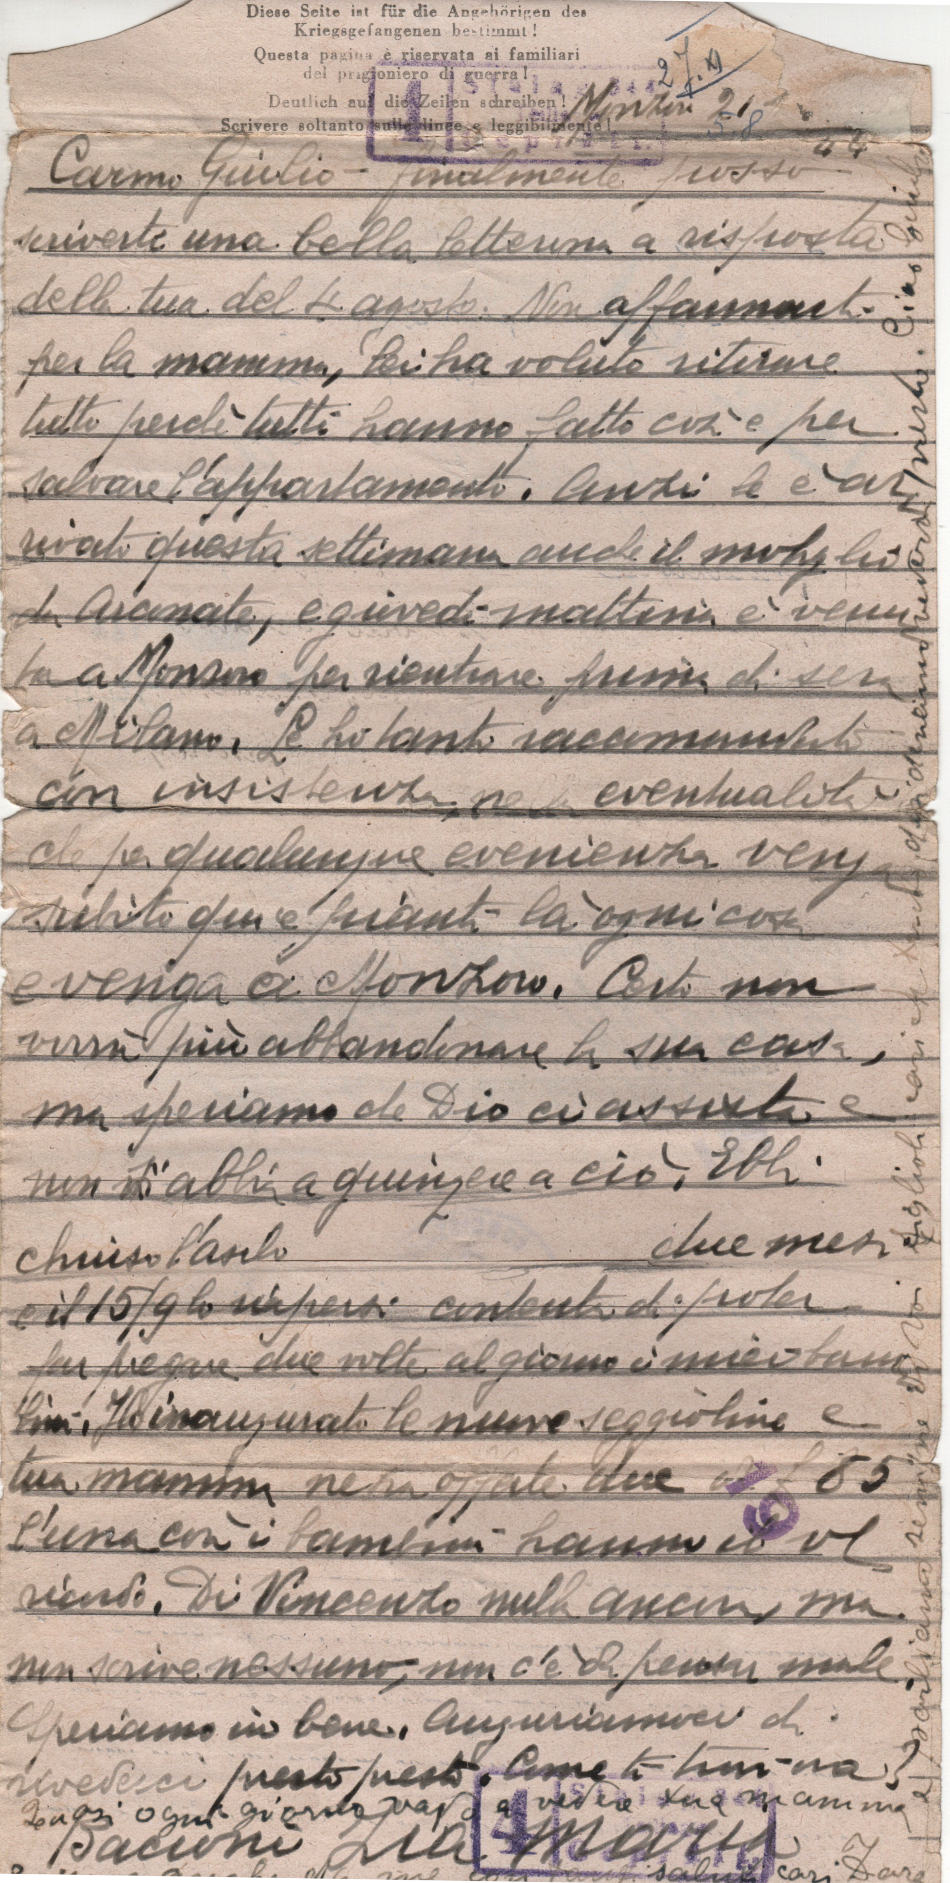 Diese Seite ist für die Angehörigen des
Kriegsgefangenen bestimmt!
Questa pagina è riservata ai familiari
del prigioniero di guerra!
Deutlich auf die Zeilen schreiben!
Scrivere soltanto sulle linee e leggibilmente!
27.XI
5.8
44
Carmo Giulio - finalmente posso
scriverti una bella letterina a risposta
della tua del 4 agosto. Non affannarti
per la mamma, lei ha voluto ritirare
tutto perchè tutti hanno fatto così e per
salvare l'appartamento. Anzi le è ar
rivato questa settimana anche il
da Arconate, e giovedì mattina è venu
ta a Monzoro per rientrare prima di sera
a Milano. Le ho tanto raccomandato
con insistenza, nella eventualità
che per qualunque evenienza venga
subito qui e pianti là ogni cosa
e venga a Monzoro. Certo non
vorrà più abbandonare la sua casa,
ma speriamo che Dio ci assista e
non si abbia a giungere a ciò. Ebbi
chiuso l'asilo due mesi
e il 15/9 lo riapersi contenta di poter
far pregare due volte al giorno i miei bam
bini. Ho inaugurato le nuove seggioline e
tua mamma ne ha offerte due 85
l'una così i bambini hanno il
ricordo. Di Vincenzo nulla ancora, ma
non scrive nessuno, non c'è da pensar male
Speriamo in bene. Auguriamoci di
rivederci presto presto. Come ti trovi
ogni giorno vado a vedere tua mamma
Bacioni Zia Maria
saluti cari Zara